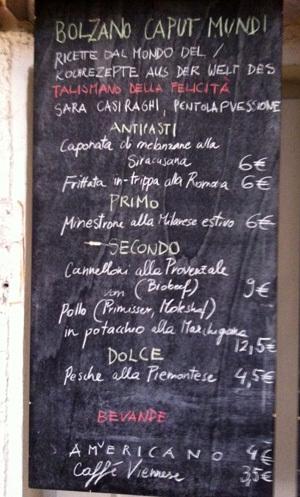 BOLZANO CAPUT MUNDI
RICETTE DAL MONDO DEL /
KOCHREZEPTE AUS DER WELT DES
TALISMANO DELLA FELICITÀ
SARA CASIRAGHI, PENTOLAPVESSIONE
ANTIPASTI
Caponata di melanzane alla
Siracusana 6€
Frittata in-trippa alla Romana 6€
PRIMO
Minestrone alla Milanese estivo 6€
SECONDO
Cannelloni alla Provenzale
vom (Biobeef) 9€
Pollo (Primisser, Moleshof)
in potacchio alla Marchigiana
12,5€
DOLCE
Pesche alla Piemontese 4,5€
BEVANDE
AMERICANO 4€
Caffé Viennese 3,5€